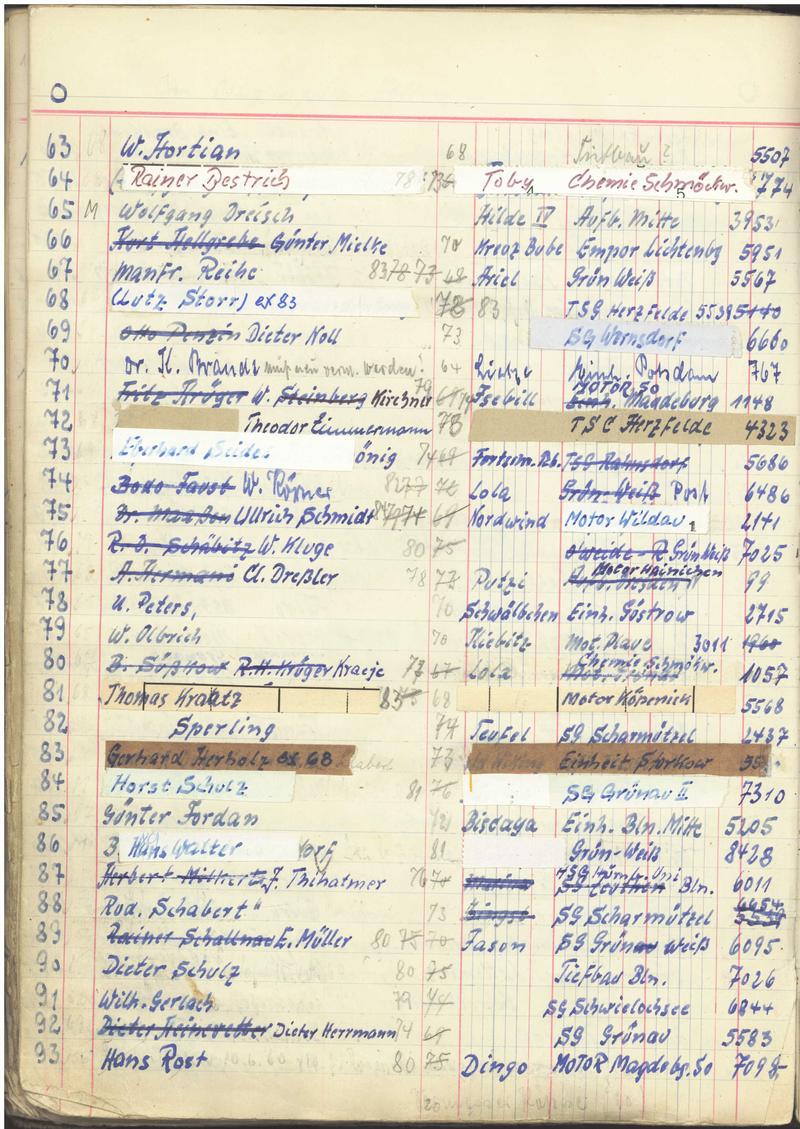 O
63 W. Hortian 68 Tiefbau? 5507
64 Rainer Bestrich 78 Toby Chemie Schmöckw. 774
65 M Wolfgang Dreisch Hilde IV Aufb. Mitte 3953
66 Günter Mielke 70 Kreuz Bube Empor Lichtenbg 5951
67 Manfr. Reihe 83 78 73 68 Ariel Grün Weiß 5567
68 (Lutz Storr) ex 83 78 83 TSG Herzfelde 5539 5140
69 Otto Penzin Dieter Noll 73 SG Wernsdorf 6660
70 Dr. Kl. Brandt muß neu verm. werden! 64 Potsdam 767
71 Fritz Krüger W. Steinberg Kirchner 79 Ilsebill MOTOR SO Einh. Magdeburg 1148
72 Theodor Zimmermann 78 TSC Herzfelde 4323
73 Eberhard Seidel önig 74 69 Fortschr. Rb. TSG Rahnsdorf 5686
74 Bodo Faust W. Körner 82 79 72 Lola Grün-Weiß Post 6486
75 Ullrich Schmidt 74 69 Nordwind Motor Wildau 1 2141
76 R. D. Schäbitz W. Kluge 80 75 Grün Weiß 7025
77 Cl. Dreßler 78 72 Putzi Motor Hainichen 99
78 U. Peters, 70 Schwälbchen Einh. Güstrow 2715
79 W. Olbrich 70 Kiebitz Mot. Plaue 3011 1960
80 R.H. Krüger Kraeje 77 67 Lola Chemie Schmökw. 1057
81 Thomas Kraatz 83 75 68 Motor Köpenick 5568
82 Sperling 74 Teufel SG Scharmützel 2437
83 Gerhard Herholz ex 68 73 Einheit Storkow 35
84 Horst Schulz 81 76 SG Grünau II 7310
85 Günter Jordan 72 Bisdaya Einh. Bln. Mitte 5205
86 B. Hans Walter dorf 81 Grün-Weiß 8428
87 J. Thihatmer 76 70 HSG Humb. Uni Bln. 6011
88 Rud. Schabert 73 SG Scharmützel 6654
89 Rainer Schallnau E. Müller 80 75 70 Jason SG Grünau weiß 6095
90 Dieter Schulz 80 75 Tiefbau Bln. 7026
91 Wilh. Gerlach 79 74 SG Schwielochsee 6844
92 Dieter Heineretter Dieter Herrmann 74 69 SG Grünau 5583
93 Hans Rost 80 75 Dingo MOTOR Magdebg. So 7098